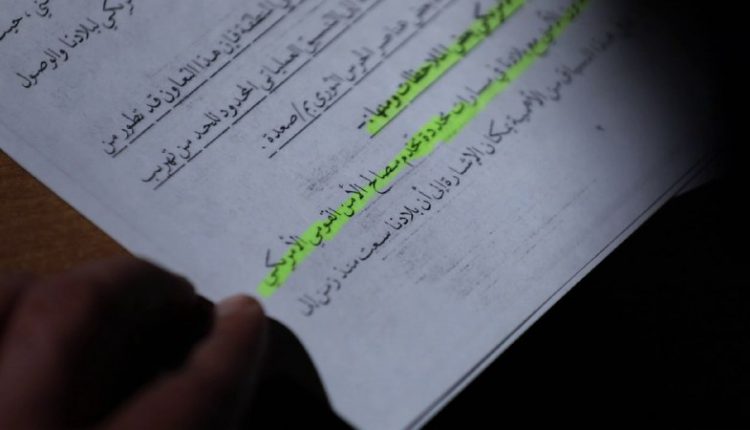 ني، حيث
ريكي لبلادنا والوصول
المنطقة فإن هذا التعاون قد تطور من
إلى التنسيق العملياتي المحدود للحد من تهريب
بعض عناصر الحرس الثوري بم/صعدة.
بعض الملاحظات ومنها:
مع بلادنا في مسارات محددة تخدم مصالح الأمن القومي الأمريكي
هذا السياق من الأهمية بمكان الإشارة إلى أن بلادنا سعت منذ زمن إلى